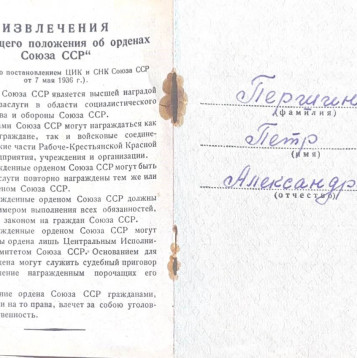 ИЗВЛЕЧЕНИЯ
щего положения об орденах
Союза ССР"
о постановлением ЦИК и СНК Союза ССР
от 7 мая 1936 г.).
Союза ССР является высшей наградой
заслуги в области социалистического
ва и обороны Союза ССР.
ами Союза ССР могут награждаться как
граждане, так и войсковые соедине-
кие части Рабоче-Крестьянской Красной
дприятия, учреждения и организации.
жденные орденом Союза ССР могут быть
слуги повторно награждены тем же или
еном Союза ССР.
ажденные орденом Союза ССР должны
имером выполнения всех обязанностей,
законом на граждан Союза ССР.
ажденные орденом Союза ССР могут
ы ордена лишь Центральным Исполни-
омитетом Союза ССР. Основанием для
дена могут служить судебный приговор
ление награжденным порочащих его
ние ордена Союза ССР гражданами,
и на то права, влечет за собою уголов-
твенность.
Першин
(фамилия)
Петр
(имя)
Александр
(отчество)